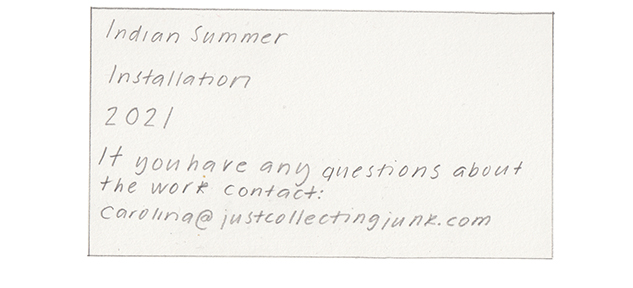 Indian Summer
Installation
2021
If you have any questions about
the work contact:
carolina@justcollectingjunk.com